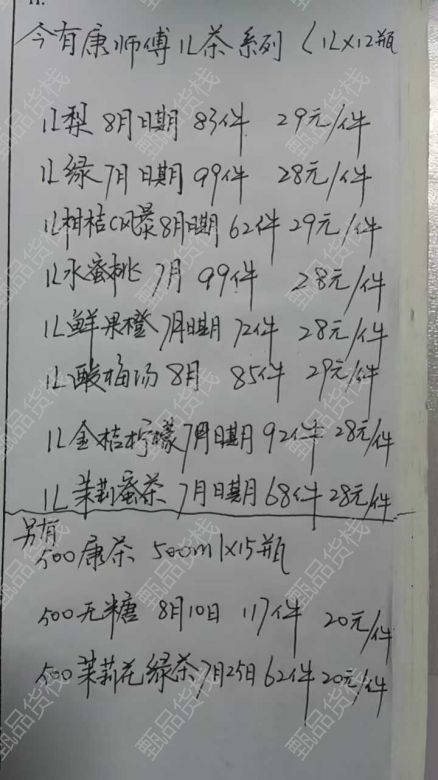 今有康师傅1L茶系列（1L×12瓶
1L梨 8月日期 83件 29元/件
1L绿 7月日期 99件 28元/件
1L柑桔C风暴 8月日期 62件 29元/件
1L水蜜桃 7月 99件 28元/件
1L鲜果橙 7月日期 72件 28元/件
1L酸梅汤 8月 85件 29元/件
1L金桔柠檬 7月日期 92件 28元/件
1L茉莉蜜茶 7月日期 68件 28元/件
另有
500康茶 500ml×15瓶
500无糖 8月10日 117件 20元/件
500茉莉花绿茶 7月25日 62件 20元/件
甄品货栈